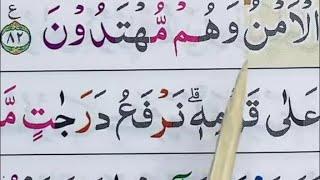 الْاَمْنُ وَهُمْ مُّهْتَدُوْنَ ﴿۸۲﴾ ع
عَلٰی قَوْمِهٖ ؕ نَرْفَعُ دَرَجٰتٍ مَّ